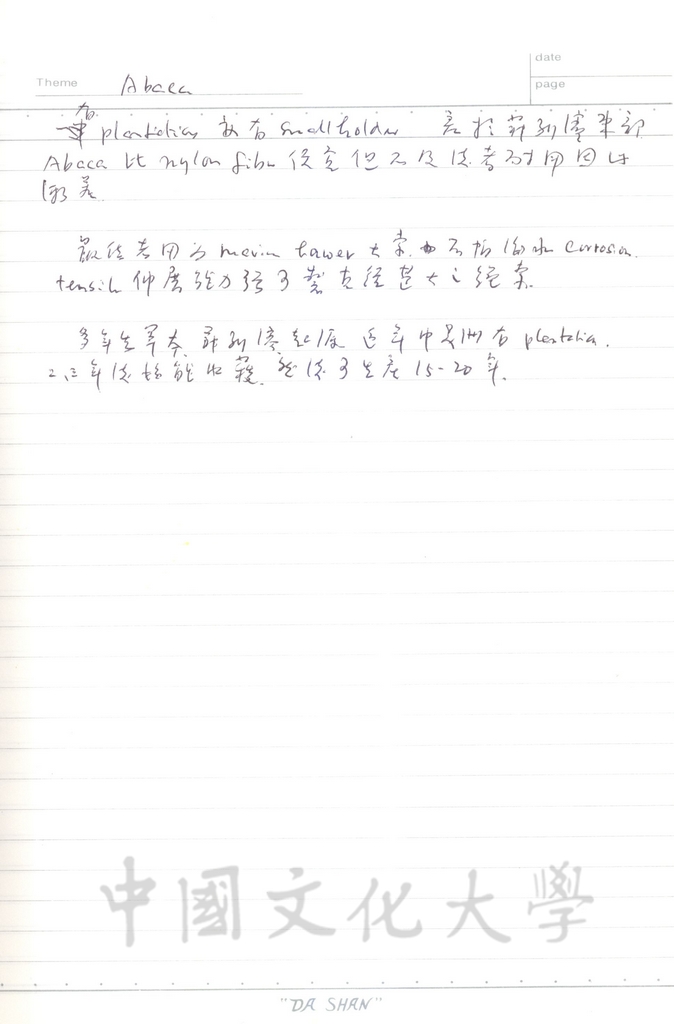 date
Theme Abaca
page
有 plantation 亦有 smallholder 產於菲列濱東部
Abaca 比 nylon fibre 便宜但不及後者耐用因此
漸差
最佳者用為 marin hawer 大索 不怕海水 corrosion
tensile 伸展強力強可製直徑甚大之繩索
多年生草本 菲列濱起源 近年中美洲有 plantation.
二、三年後始能收穫, 然後可生產 15-20 年.
中國文化大學
"DA SHAN"